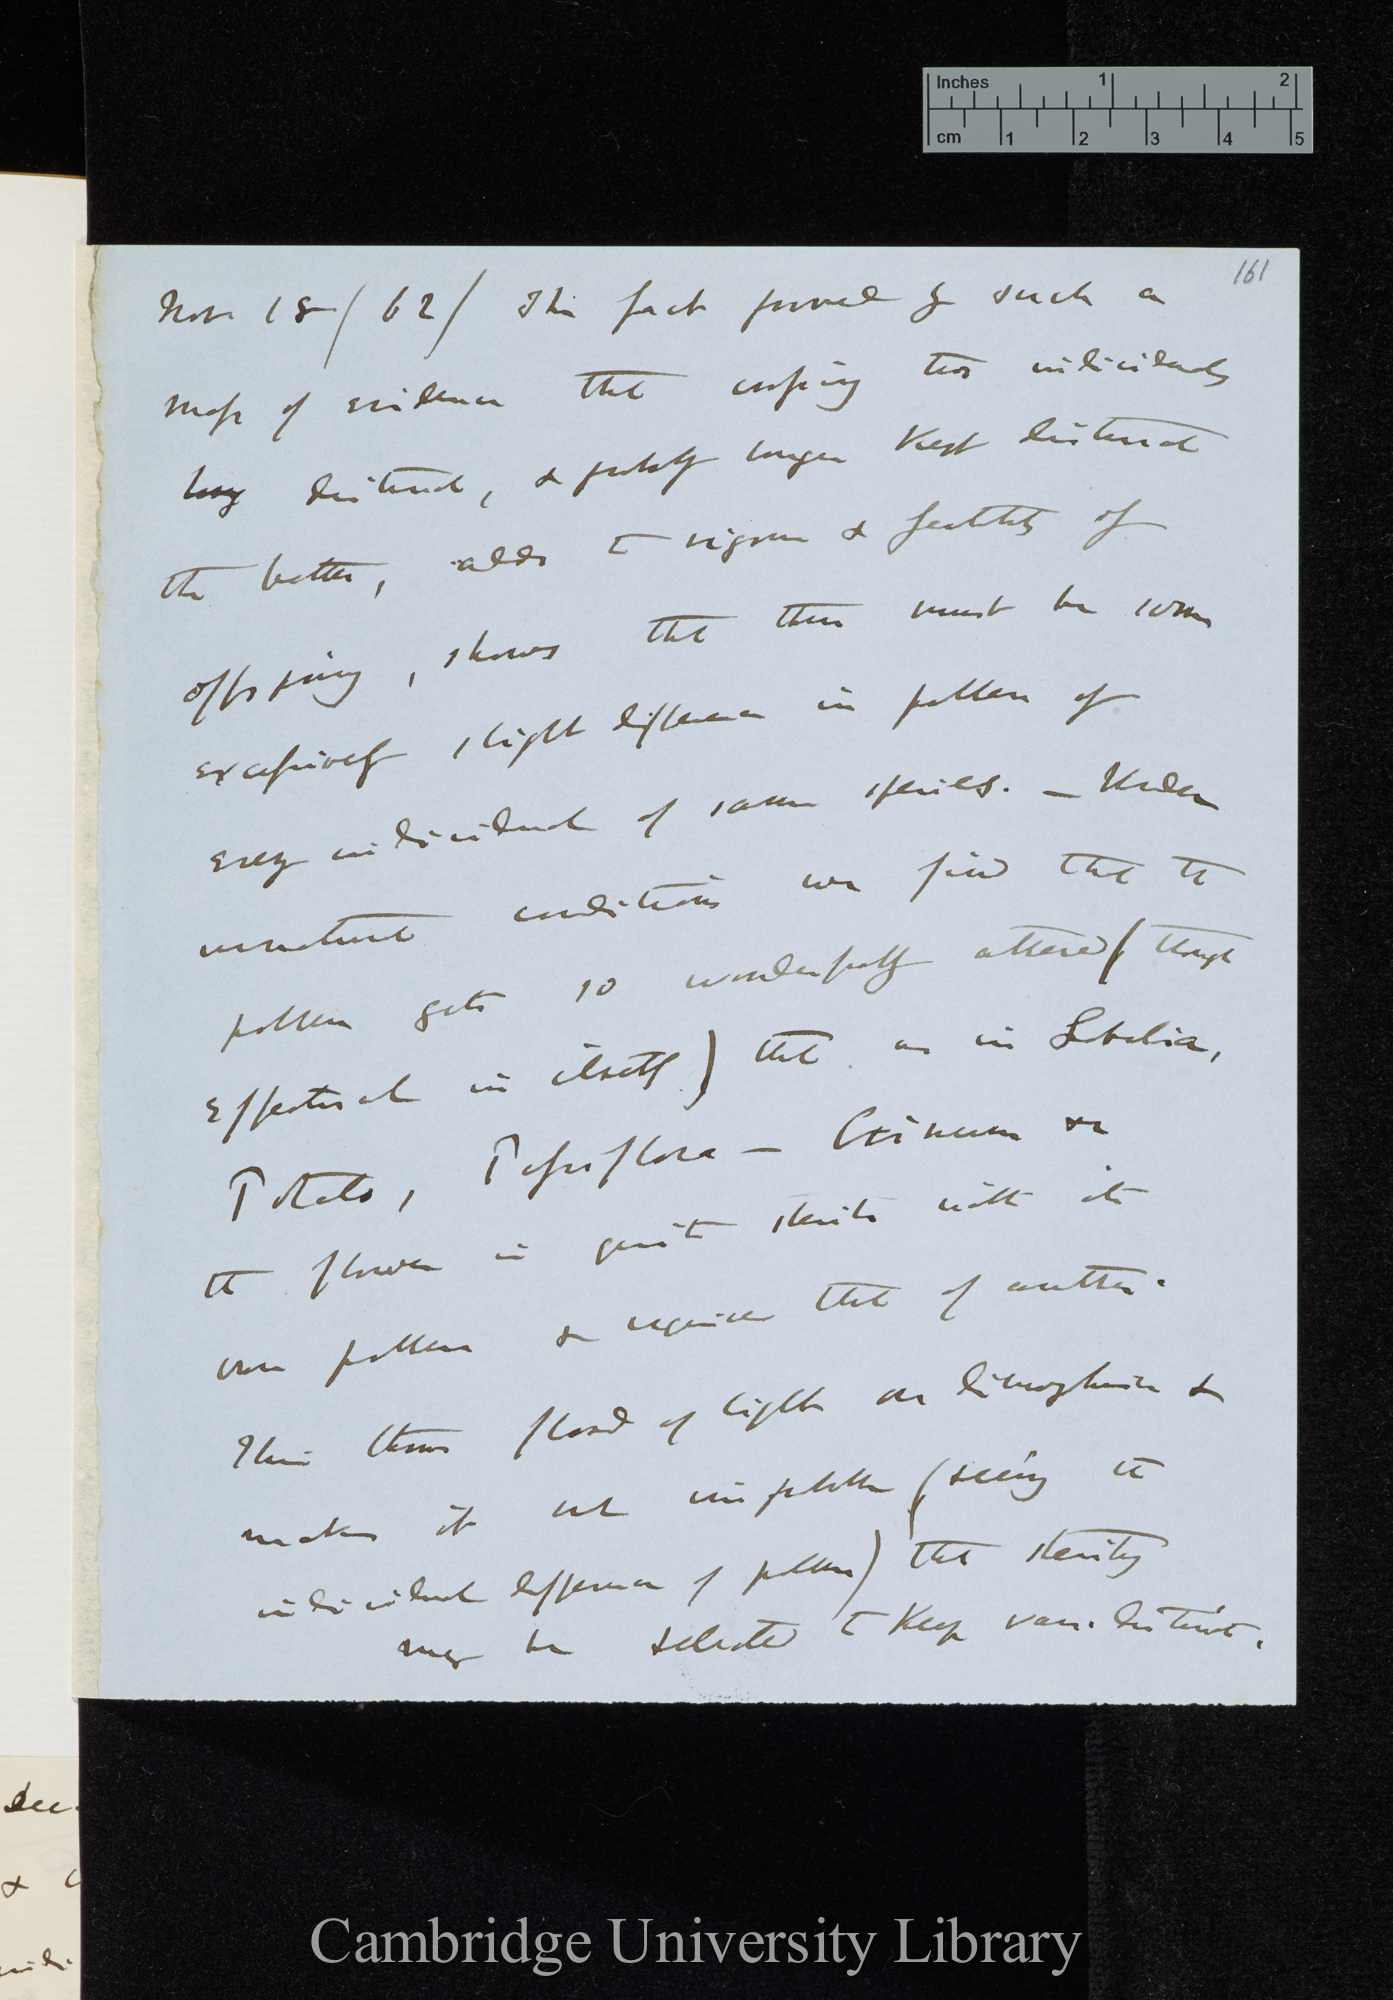 Inches 1 2
cm 1 2 3 4 5
161
Nov. 18 /62/ This fact proved by such a
mass of evidence that crossing two individuals
long distinct, & probably longer kept distinct
the better, adds to vigour & fertility of
offspring, shows that there must be some
excessively slight difference in pollen of
every individual of same species. — Under
unnatural conditions we find that the
pollen gets so wonderfully altered (though
effectual in itself) that as in Lobelia,
Potato, Passiflora — Crinum &c
the flower is quite sterile with its
own pollen & requires that of another.
This throws flood of light on dimorphism &
makes it not impossible (seeing the
individual difference of pollen) that sterility
may be selected to keep var. distinct.
Dec.
&
Cambridge University Library